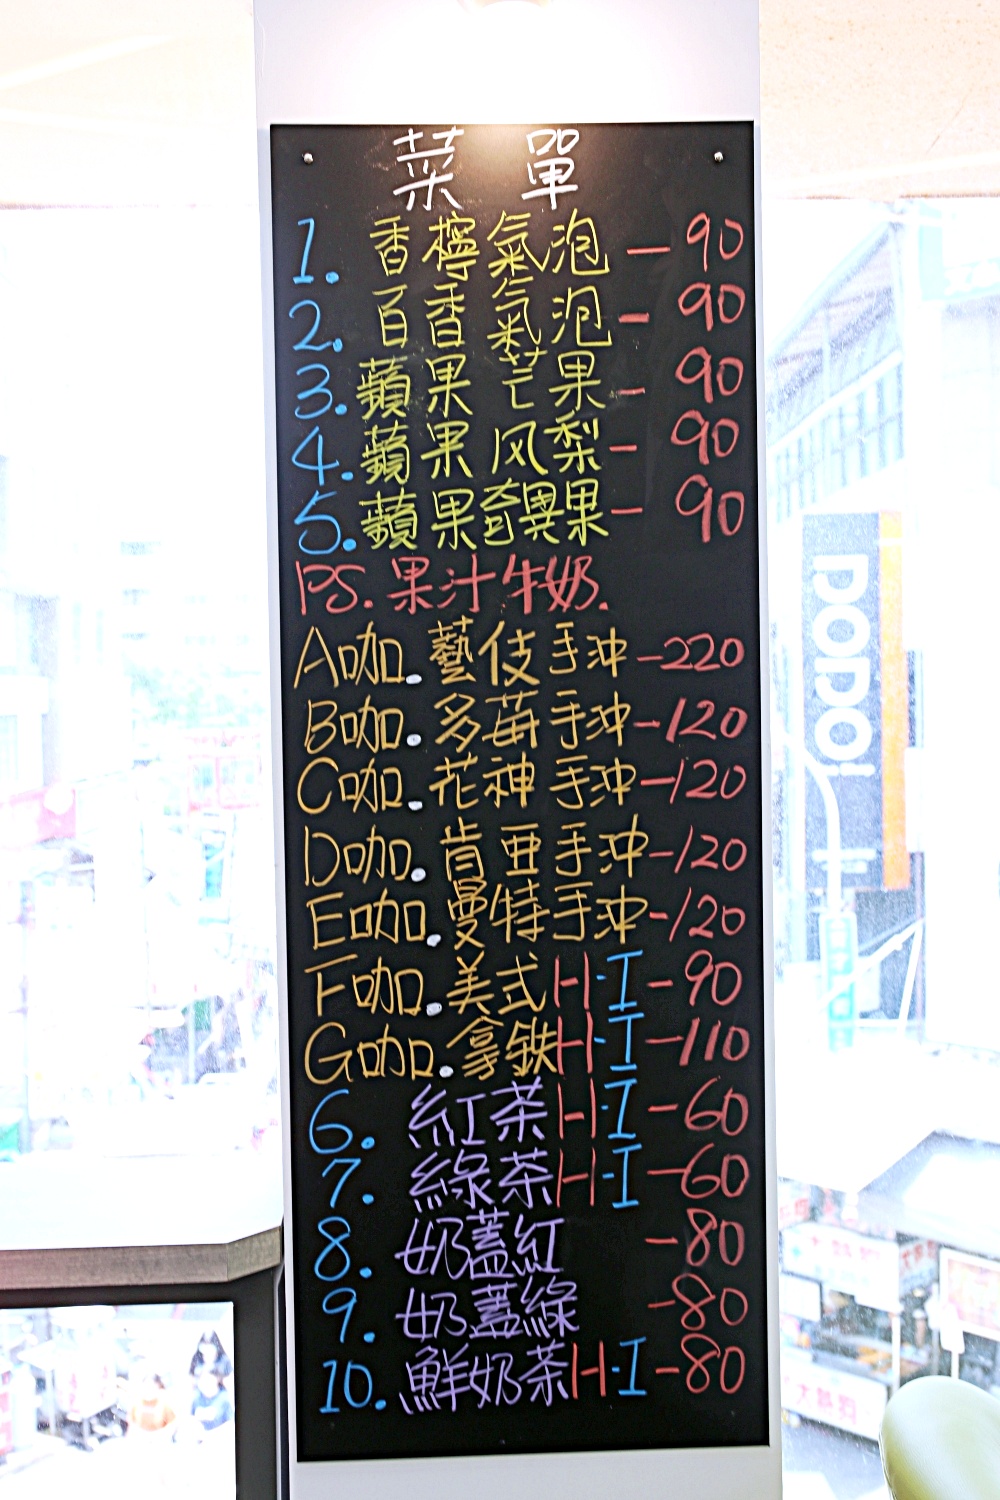 菜單
1. 香檸氣泡 - 90
2. 百香氣泡 - 90
3. 蘋果芒果 - 90
4. 蘋果风梨 - 90
5. 蘋果奇異果 - 90
PS. 果汁牛奶.
A咖. 藝伎手沖 - 220
B咖. 多莓手沖 - 120
C咖. 花神手沖 - 120
D咖. 肯亜手沖 - 120
E咖. 曼特手沖 - 120
F咖. 美式 H·I - 90
G咖. 拿鉄 H·I - 110
6. 紅茶 H·I - 60
7. 綠茶 H·I - 60
8. 奶蓋紅 - 80
9. 奶蓋綠 - 80
10. 鮮奶茶 H·I - 80
DODO!